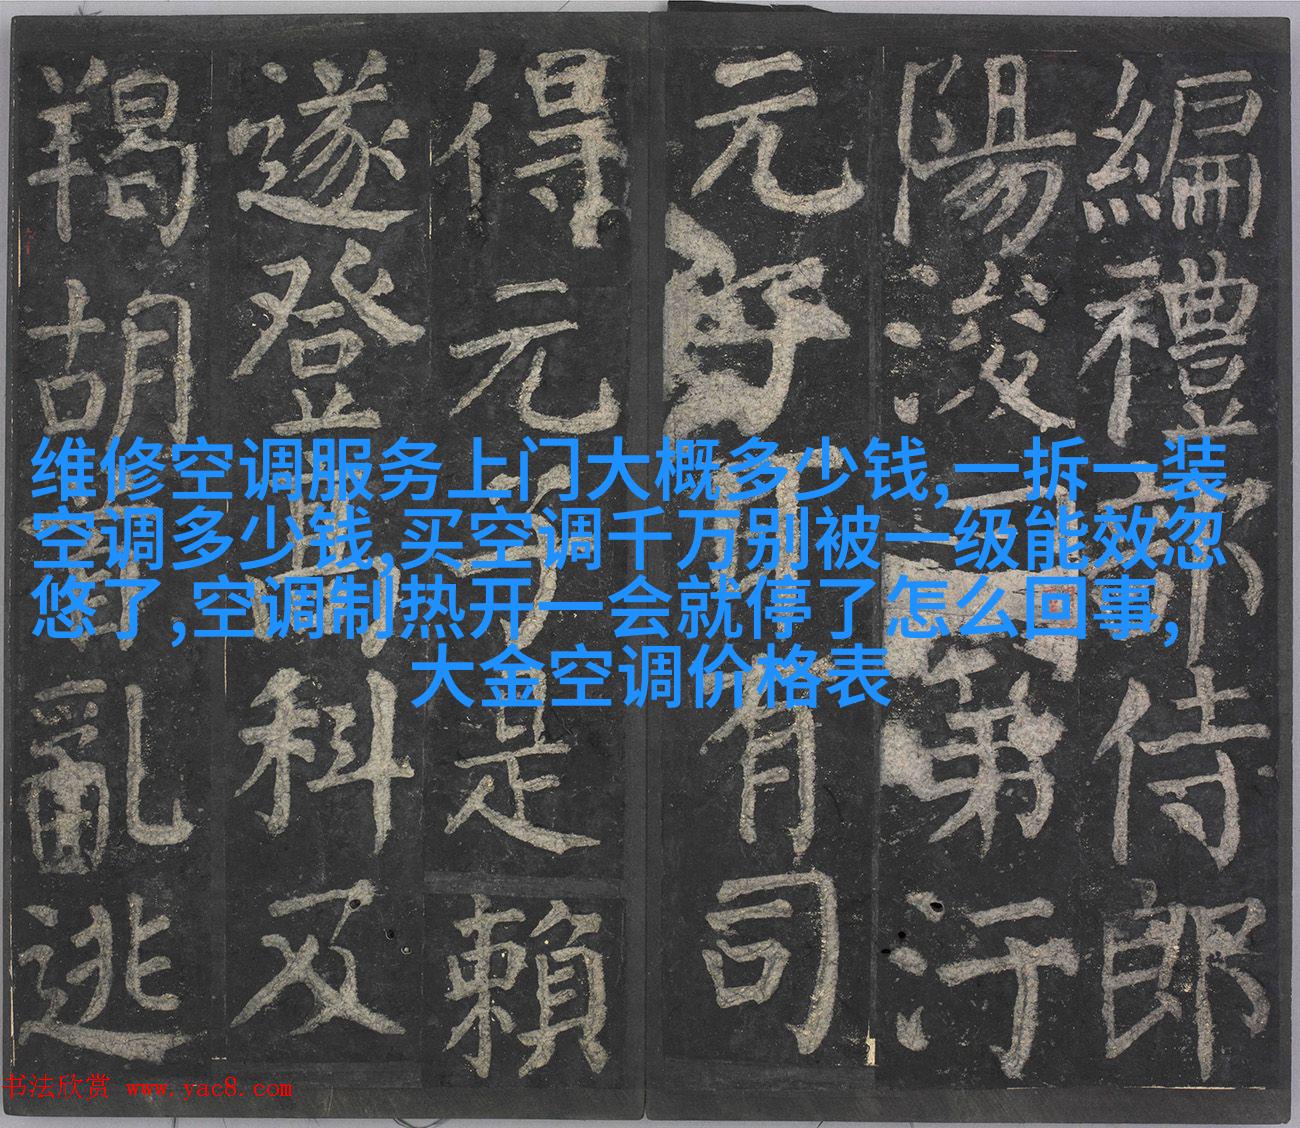 編禮部侍郎
陽浚曰一第汙
元子耳有司
得元子是賴
遂登高科及
羯胡首亂逃
维修空调服务上门大概多少钱,一拆一装
空调多少钱,买空调千万别被一级能效忽
悠了,空调制热开一会就停了怎么回事,
大金空调价格表
书法欣赏 www.yac8.com